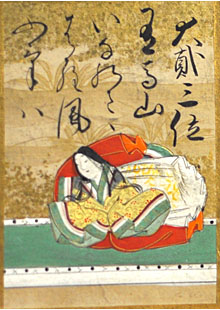 大貳三位
有馬山
いなのさゝ
はら風
ふけハ